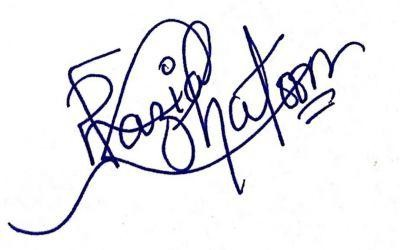 Razia Khatoon